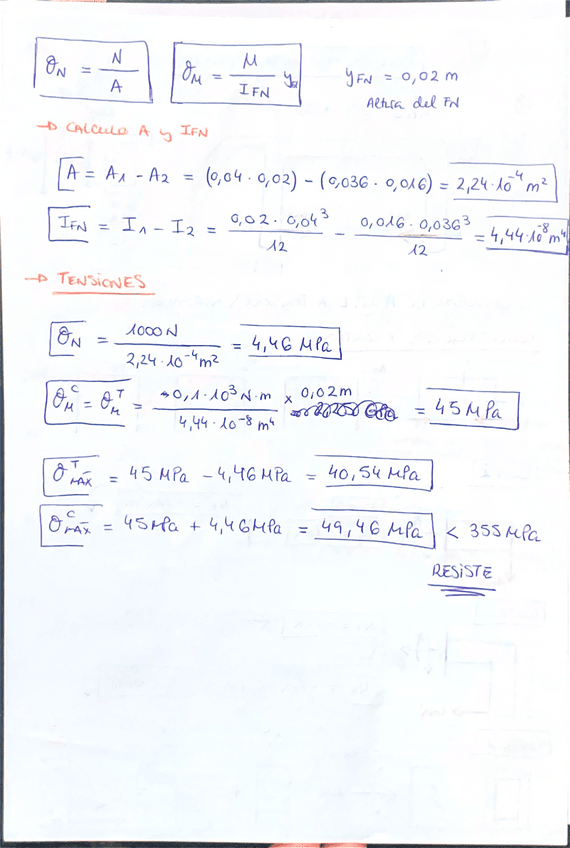 σ_N = N / A   σ_M = M / I_FN y   y_FN = 0,02 m
Altura del FN
→ CALCULO A y I_FN
A = A₁ - A₂ = (0,04 · 0,02) - (0,036 · 0,016) = 2,24·10⁻⁴ m²
I_FN = I₁ - I₂ = 0,02 · 0,04³ / 12 - 0,016 · 0,036³ / 12 = 4,44·10⁻⁸ m⁴
→ TENSIONES
σ_N = 1000 N / 2,24·10⁻⁴ m² = 4,46 MPa
σ_M^C = σ_M^T = 0,1·10³ N·m / 4,44·10⁻⁸ m⁴ × 0,02 m = 45 MPa
σ_MAX^T = 45 MPa - 4,46 MPa = 40,54 MPa
σ_MAX^C = 45 MPa + 4,46 MPa = 49,46 MPa < 355 MPa
RESISTE